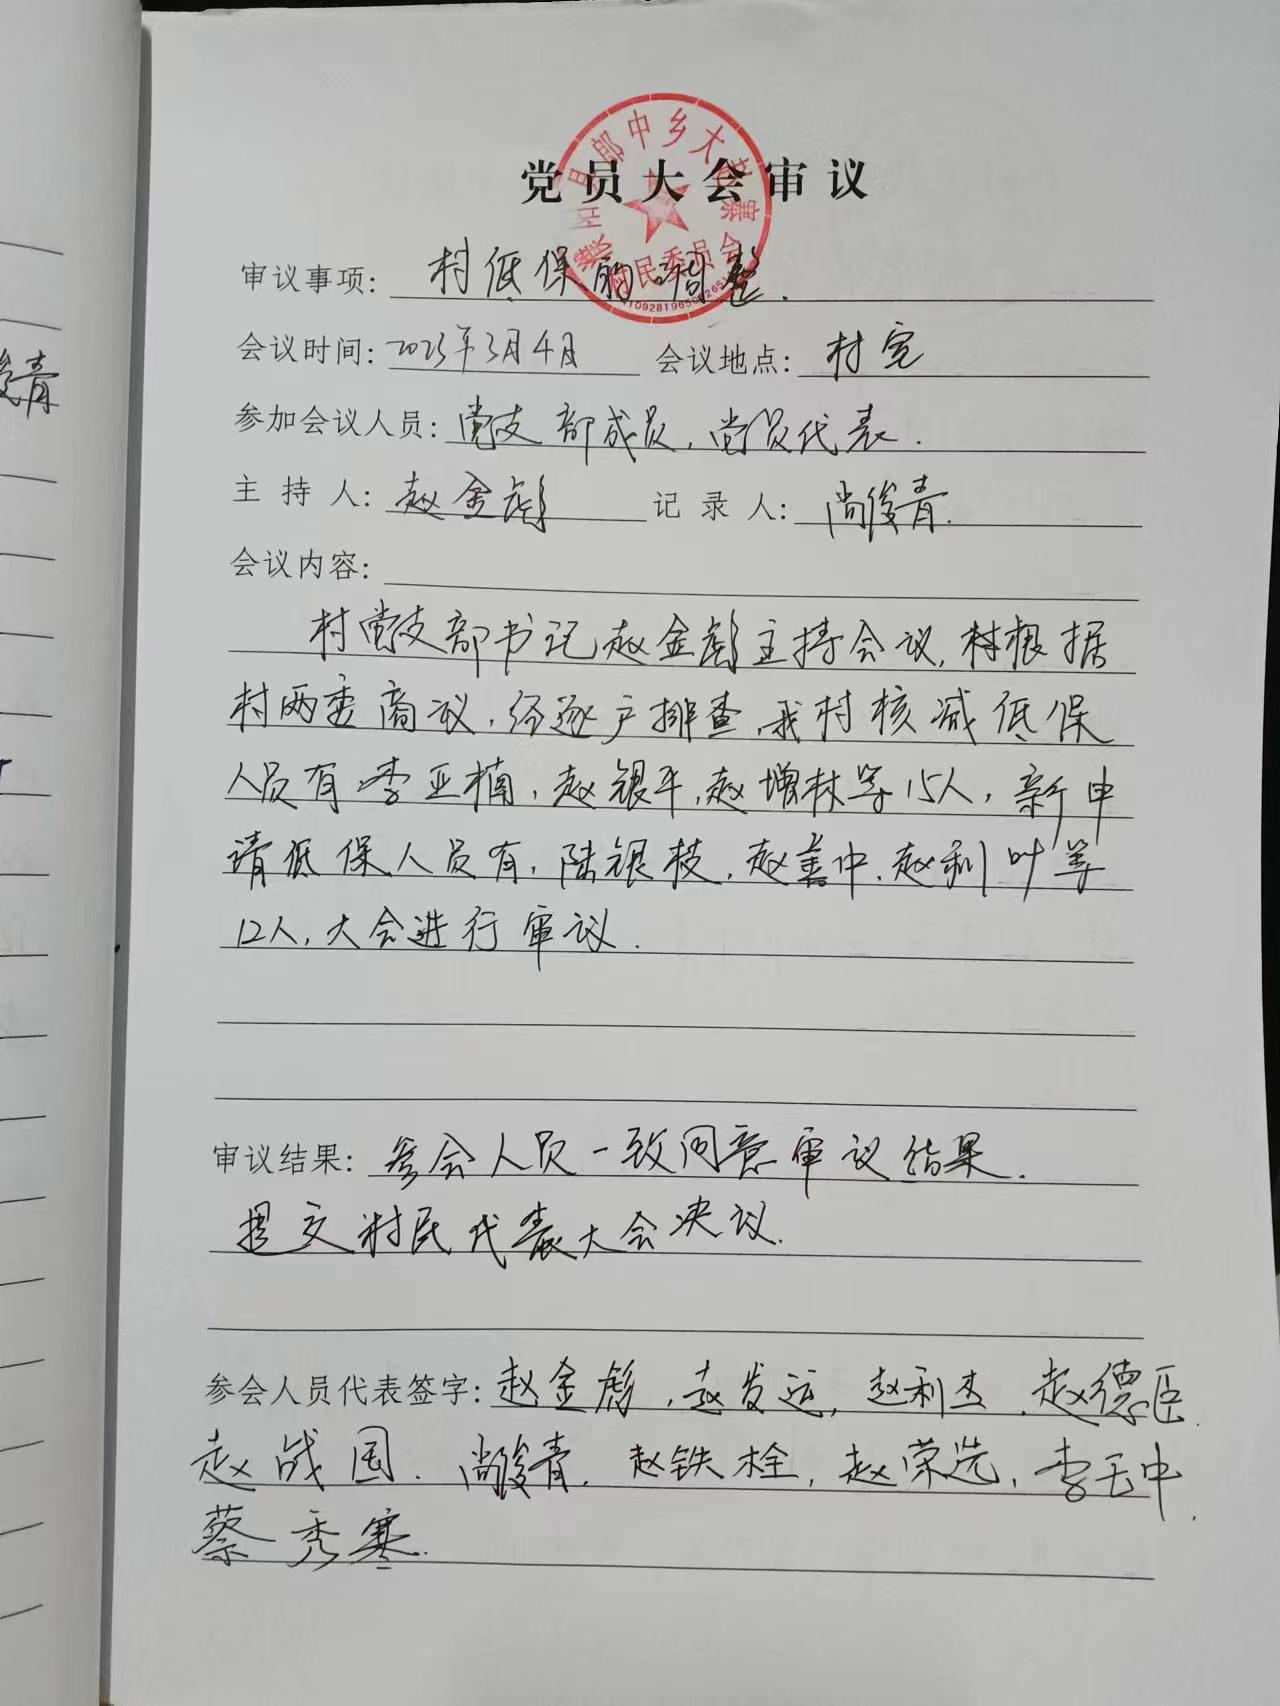 党员大会审议
郎中乡大赵寨
村民委员会
审议事项: 村低保的调整.
会议时间: 2023年3月4日 会议地点: 村室
参加会议人员: 党支部成员, 党员代表.
主持人: 赵金彪 记录人: 尚俊青.
会议内容:
村党支部书记赵金彪主持会议, 村根据
村两委商议, 经逐户排查, 我村核减低保
人员有李亚楠, 赵银平, 赵增林等15人, 新申
请低保人员有, 陆银枝, 赵善中, 赵利叶等
12人, 大会进行审议.
审议结果: 参会人员一致同意审议结果.
提交村民代表大会决议.
参会人员代表签字: 赵金彪, 赵发运, 赵利杰, 赵德臣.
赵战国. 尚俊青. 赵铁栓, 赵荣选, 李玉中.
蔡秀寒.
青